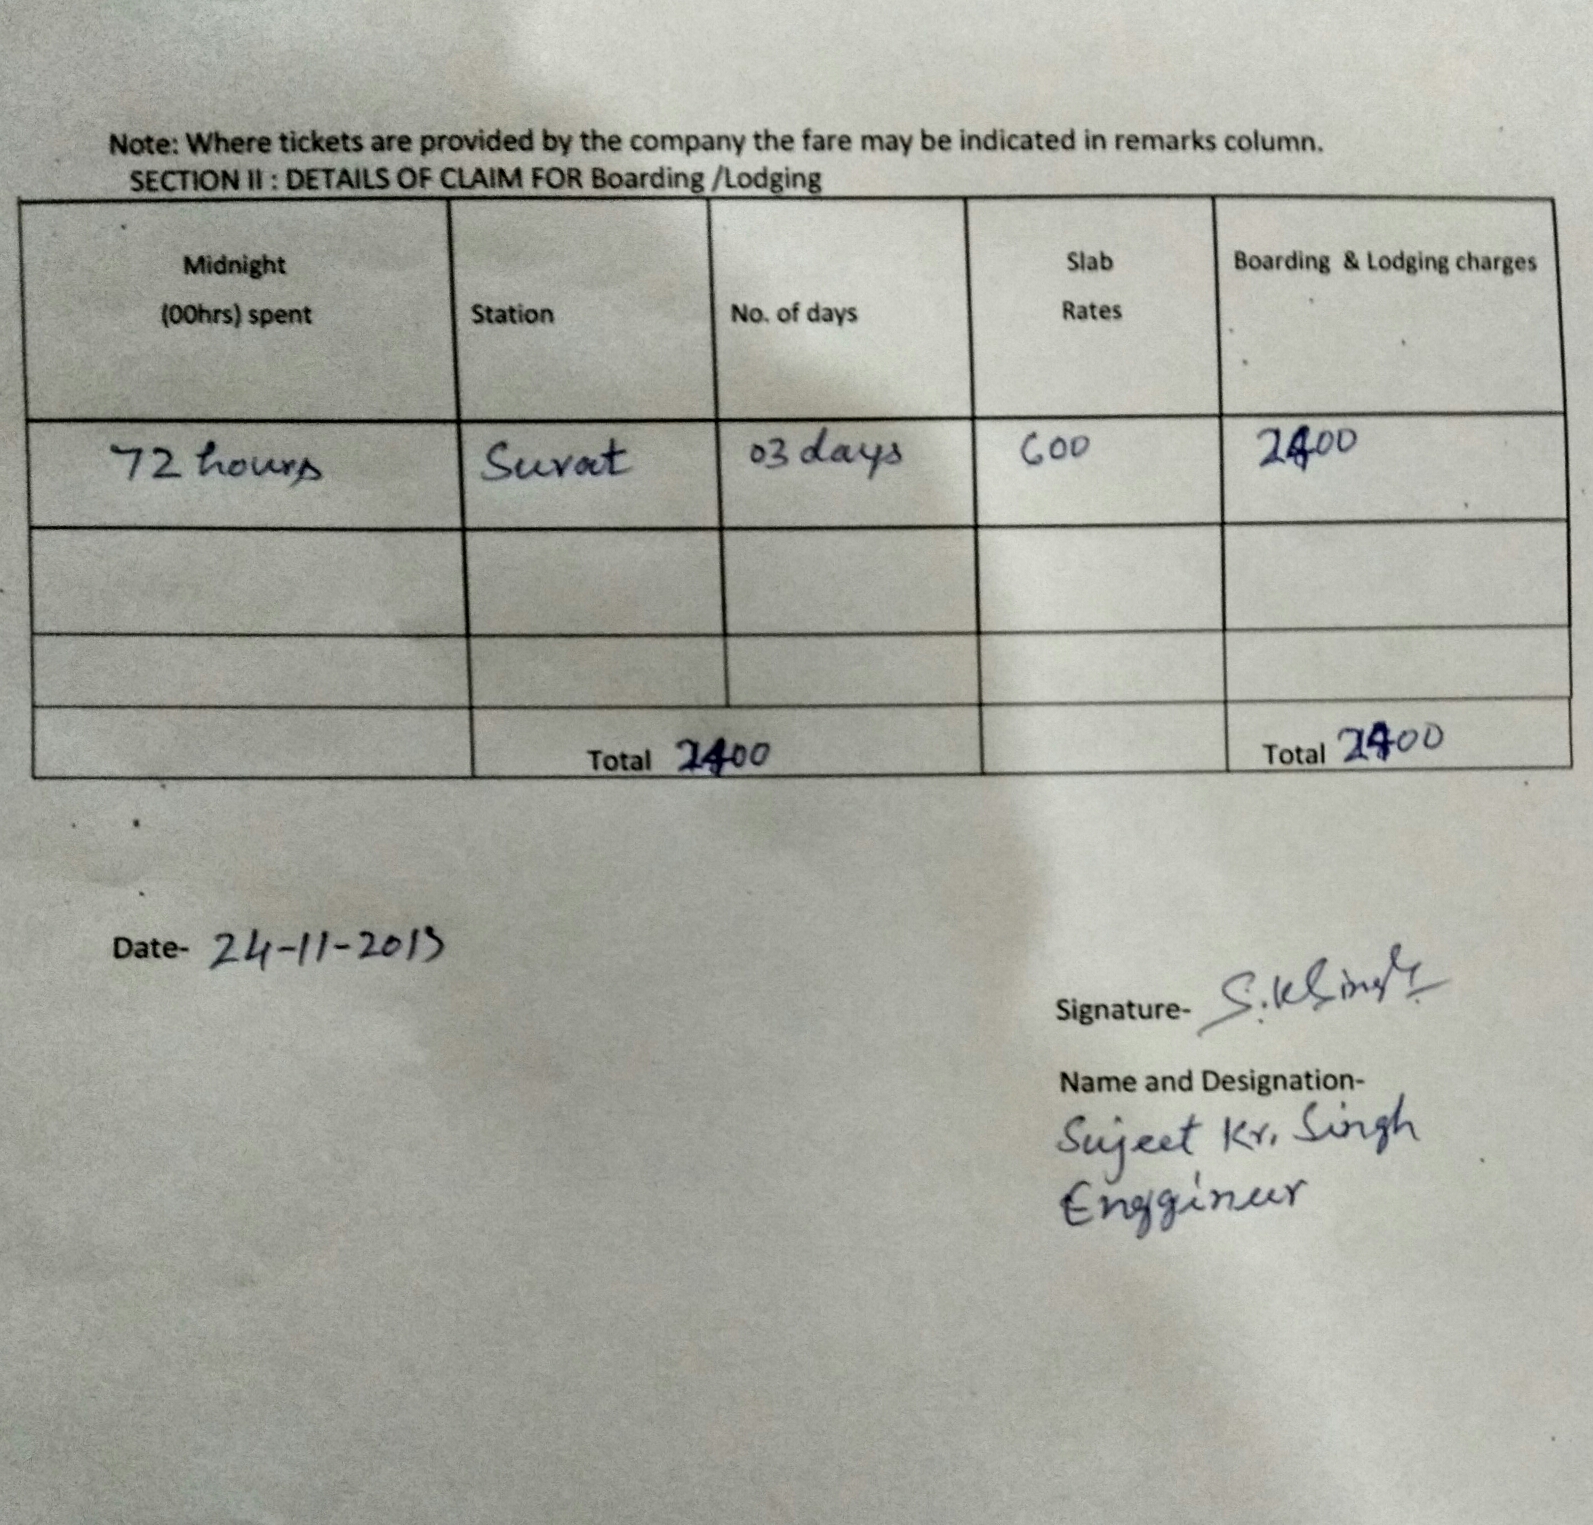 Note: Where tickets are provided by the company the fare may be indicated in remarks column.
SECTION II : DETAILS OF CLAIM FOR Boarding /Lodging
Midnight (00hrs) spent Station No. of days Slab Rates Boarding & Lodging charges
72 hours Surat 03 days 600 2400
Total 2400 Total 2400
Date- 24-11-2013
Signature- S.K Singh
Name and Designation-
Sujeet Kr. Singh
Enggineer